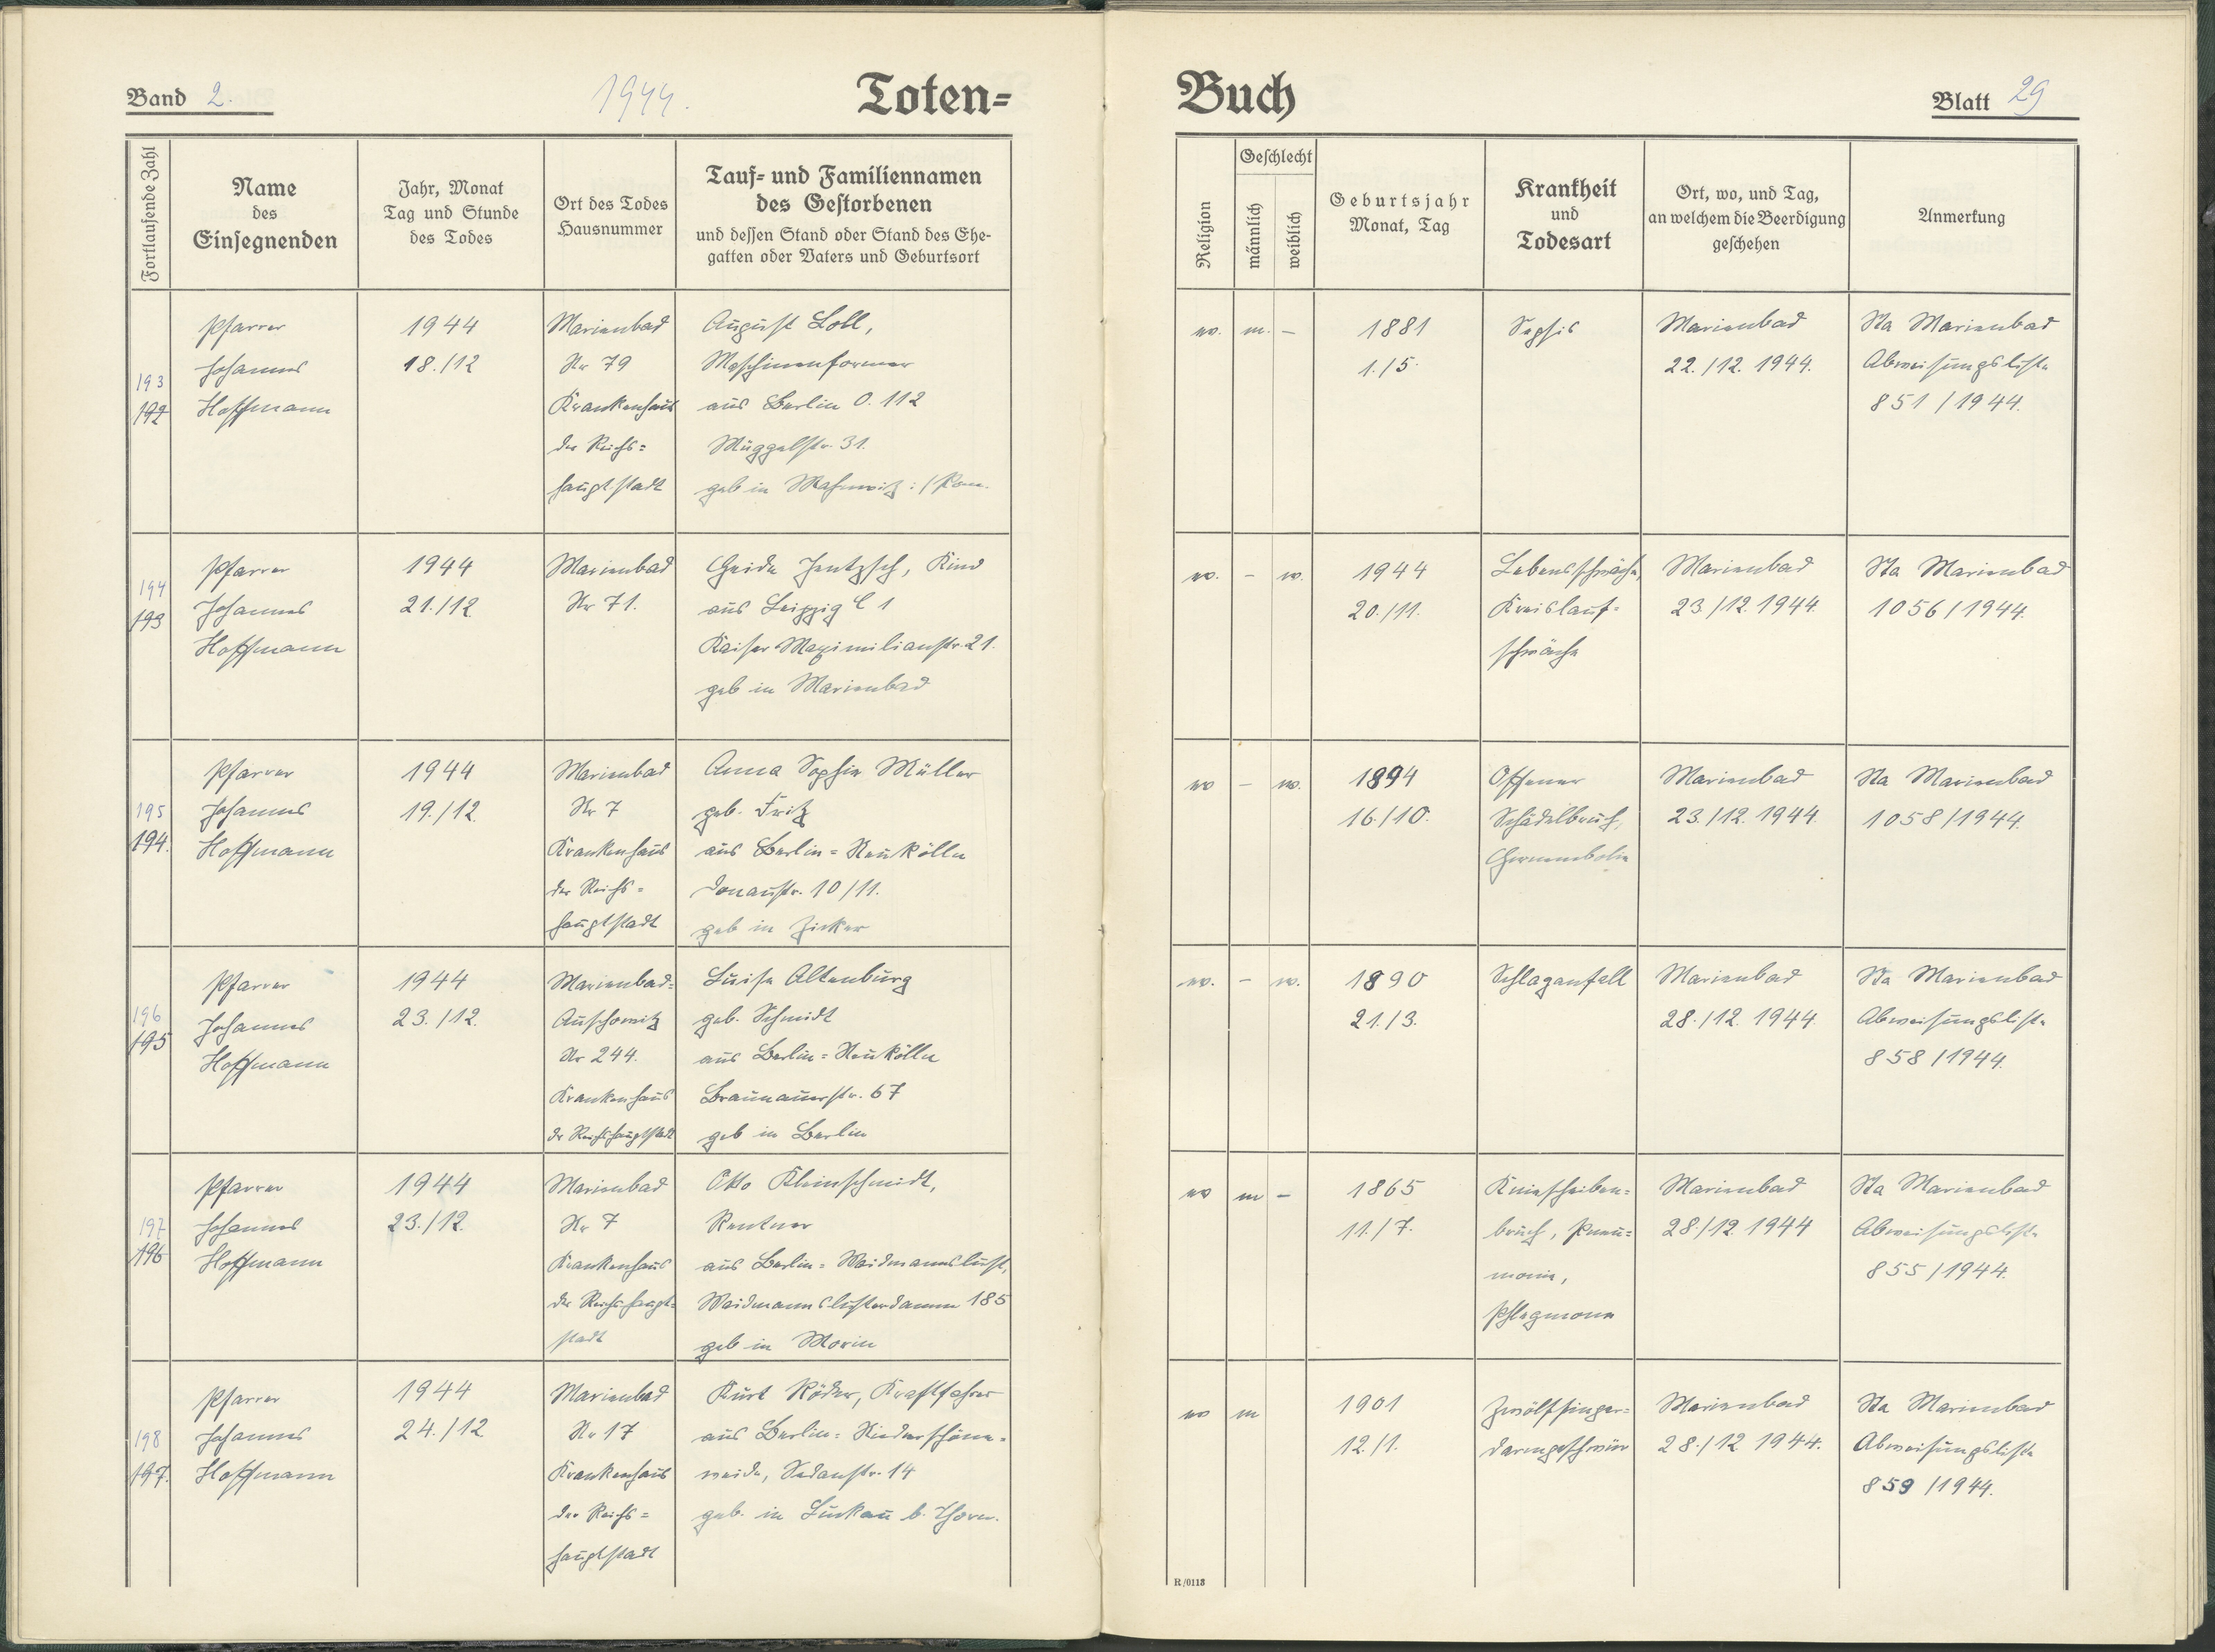 Band 2.
1944.
Toten=
Buch
Blatt 29
Fortlaufende Zahl
Name
des
Einsegnenden
Jahr, Monat
Tag und Stunde
des Todes
Ort des Todes
Hausnummer
Tauf= und Familiennamen
des Gestorbenen
und dessen Stand oder Stand des Ehe-
gatten oder Vaters und Geburtsort
Religion
Geschlecht
männlich
weiblich
Geburtsjahr
Monat, Tag
Krankheit
und
Todesart
Ort, wo, und Tag,
an welchem die Beerdigung
geschehen
Anmerkung
193
192
Pfarrer
Johannes
Hoffmann
1944
18./12
Marienbad
Nr 79
Krankenhaus
der Reichs=
hauptstadt
August Loll,
Maschinenformer
aus Berlin O. 112
Müggelstr. 31.
geb in
ev.
m.
–
1881
1./5.
Sepsis
Marienbad
22./12. 1944.
Sta Marienbad
Abweisungsliste
851/1944.
194
193
Pfarrer
Johannes
Hoffmann
1944
21./12.
Marienbad
Nr 71.
Jentzsch, Kind
aus Leipzig C 1
Kaiser Maximilianstr. 21.
geb in Marienbad
ev.
–
w.
1944
20./11.
Lebensschwäche,
Kreislauf=
schwäche
Marienbad
23./12. 1944.
Sta Marienbad
1056/1944.
195
194.
Pfarrer
Johannes
Hoffmann
1944
19./12.
Marienbad
Nr 7
Krankenhaus
der Reichs=
hauptstadt
Anna Sophie Müller
geb. Fritz
aus Berlin=Neukölln
Donaustr. 10/11.
geb in Zicker
ev
–
w.
1894
16./10.
Offener
Schädelbruch,
Marienbad
23./12. 1944.
Sta Marienbad
1058/1944.
196
195
Pfarrer
Johannes
Hoffmann
1944
23./12.
Marienbad=
Auschowitz
Nr 244.
Krankenhaus
der Reichshauptstadt
Luise Altenburg
geb. Schmidt
aus Berlin=Neukölln
Braunauerstr. 67
geb in Berlin
ev.
–
w.
1890
21./3.
Schlaganfall
Marienbad
28./12. 1944.
Sta Marienbad
Abweisungsliste
858/1944.
197
196
Pfarrer
Johannes
Hoffmann
1944
23./12.
Marienbad
Nr 7
Krankenhaus
der Reichshaupt=
stadt
Otto Kleinschmidt,
Rentner
aus Berlin=Waidmannslust,
Waidmannslusterdamm 185
geb in Morin
ev
m
–
1865
11./7.
Kniescheiben=
bruch, Pneu=
monie,
Phlegmone
Marienbad
28./12. 1944
Sta Marienbad
Abweisungsliste
855/1944.
198
197.
Pfarrer
Johannes
Hoffmann
1944
24./12
Marienbad
Nr 17
Krankenhaus
der Reichs=
hauptstadt
Kurt Röder, Kraftfahrer
aus Berlin=Niederschöne=
weide, Sedanstr. 14
geb. in Luckau b. Thorn.
ev
m
1901
12./1.
Zwölffinger=
darmgeschwür
Marienbad
28./12 1944.
Sta Marienbad
Abweisungsliste
859/1944.
R/0113